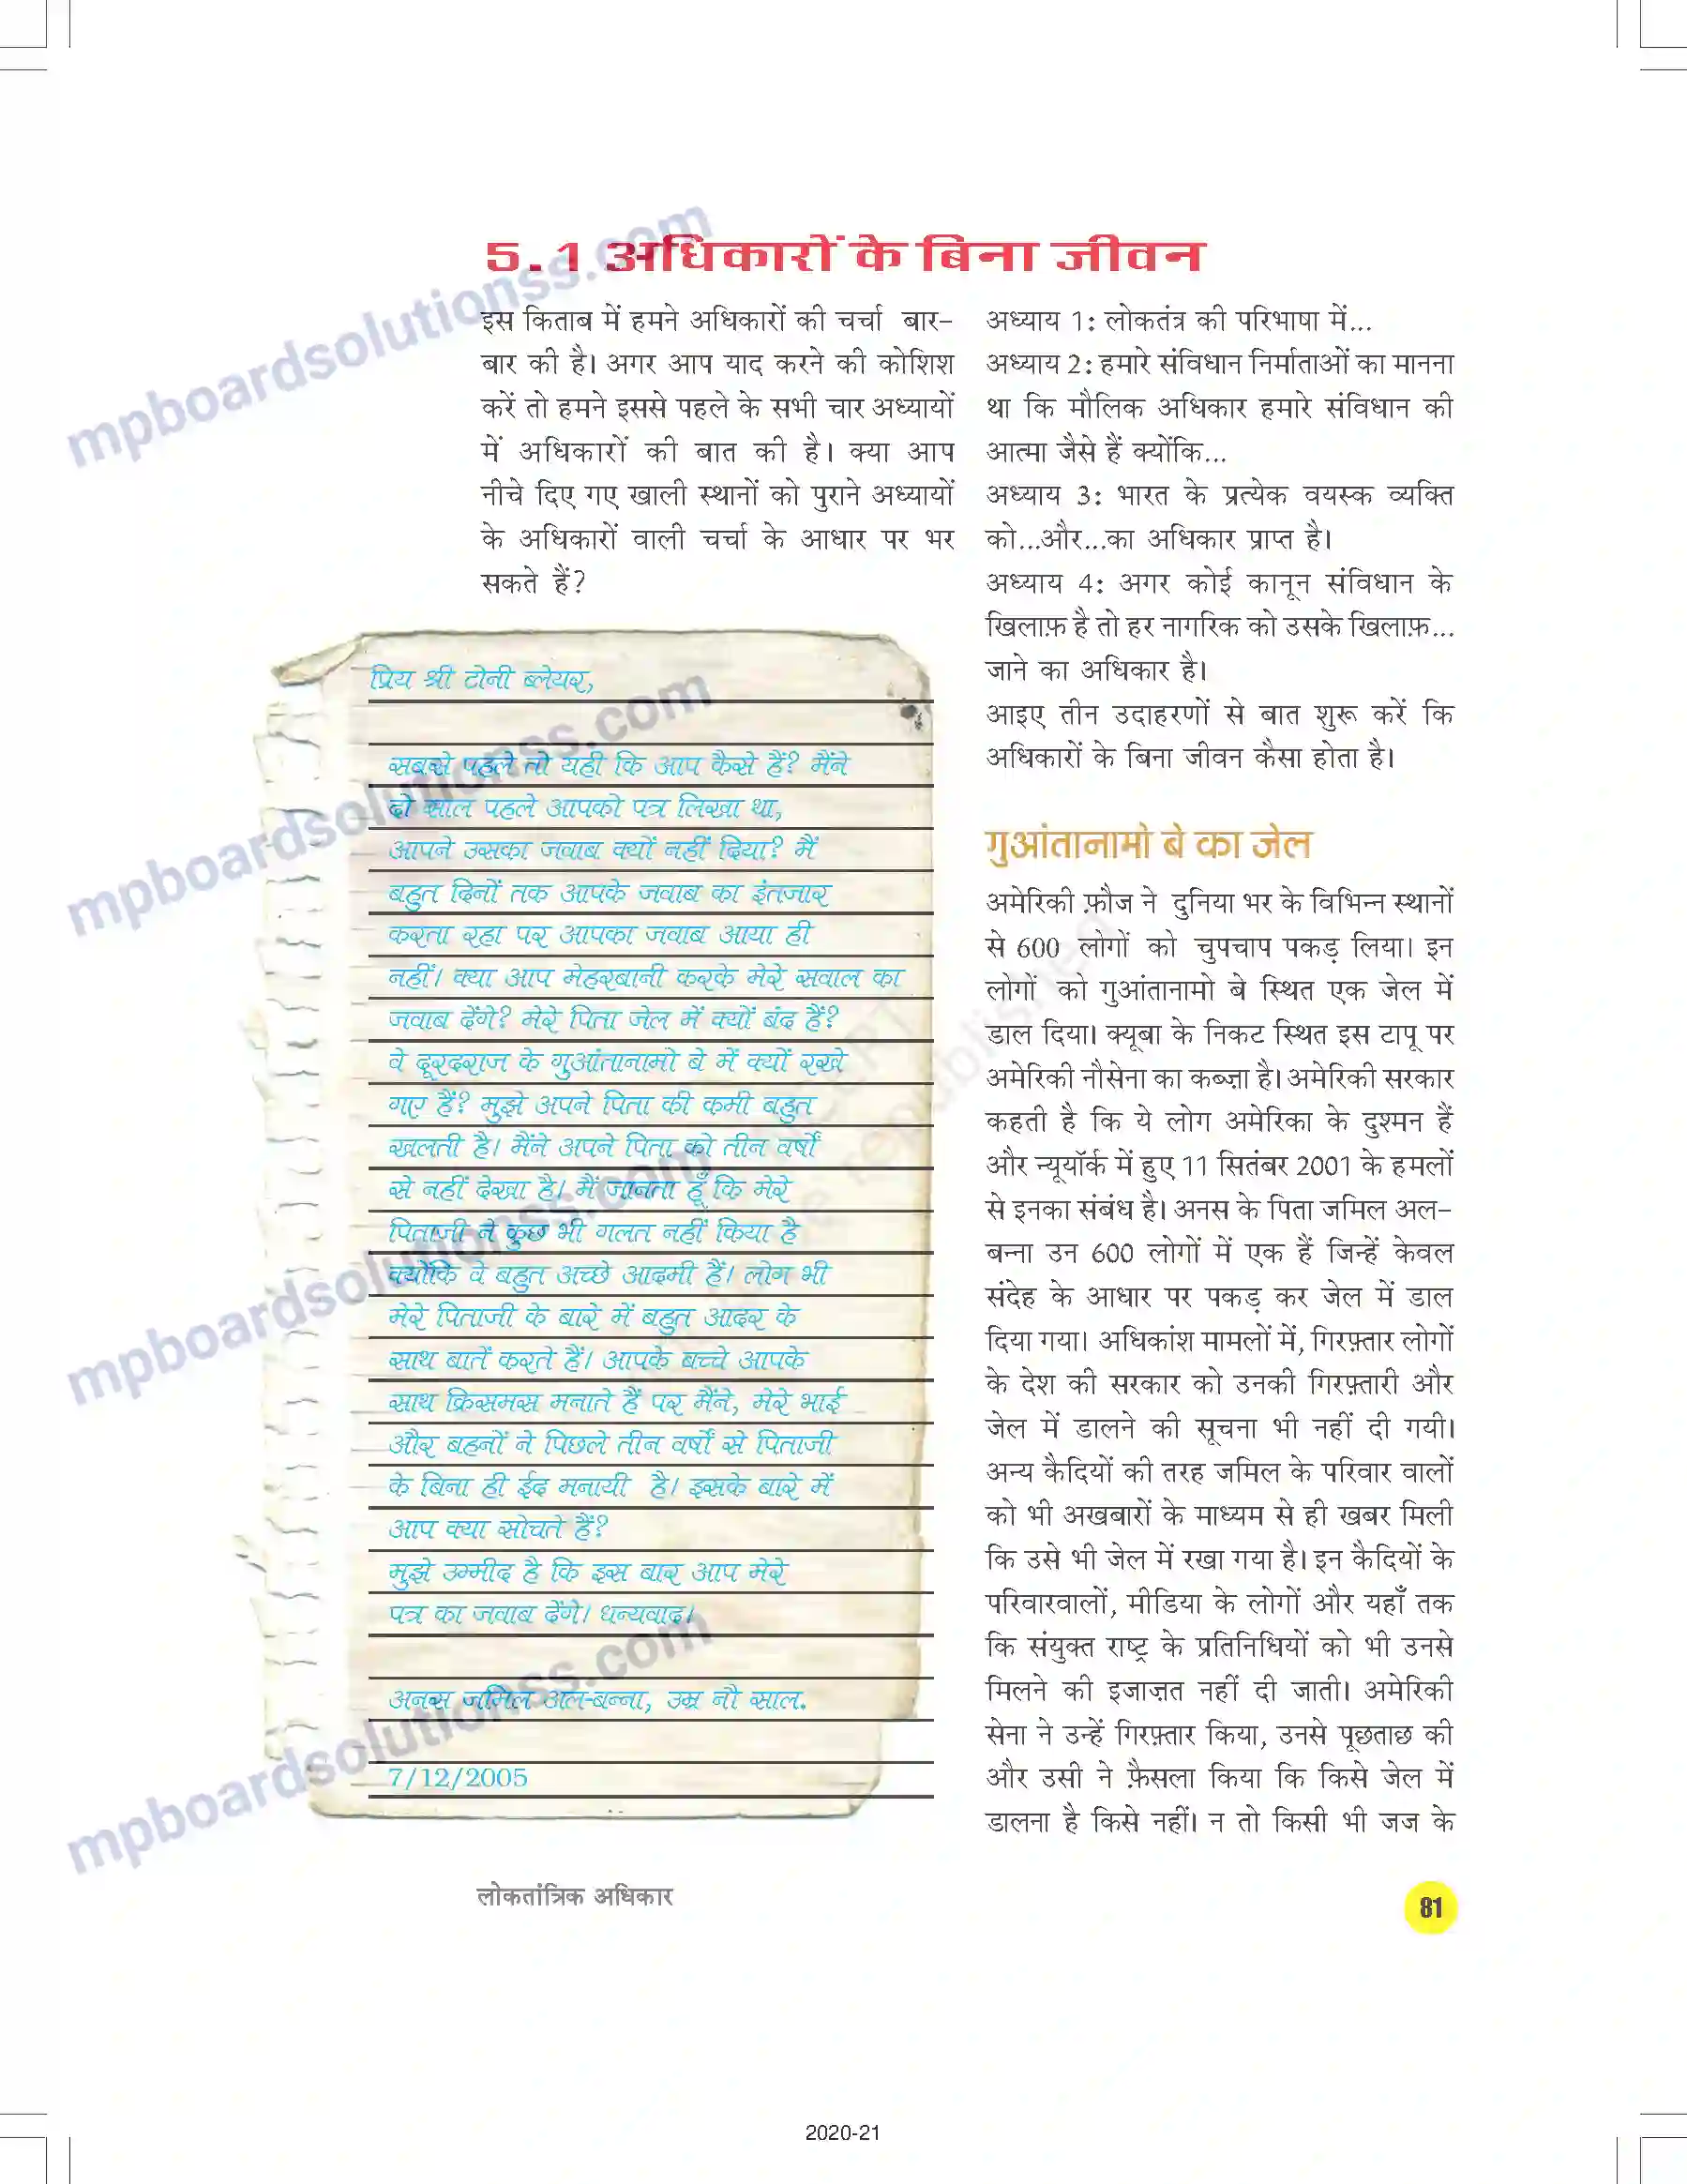 5.1 अधिकारों के बिना जीवन
इस किताब में हमने अधिकारों की चर्चा बार-
बार की है। अगर आप याद करने की कोशिश
करें तो हमने इससे पहले के सभी चार अध्यायों
में अधिकारों की बात की है। क्या आप
नीचे दिए गए खाली स्थानों को पुराने अध्यायों
के अधिकारों वाली चर्चा के आधार पर भर
सकते हैं?
प्रिय श्री टोनी ब्लेयर,
सबसे पहले तो यही कि आप कैसे हैं? मैंने
दो साल पहले आपको पत्र लिखा था,
आपने उसका जवाब क्यों नहीं दिया? मैं
बहुत दिनों तक आपके जवाब का इंतजार
करता रहा पर आपका जवाब आया ही
नहीं। क्या आप मेहरबानी करके मेरे सवाल का
जवाब देंगे? मेरे पिता जेल में क्यों बंद हैं?
वे दूरदराज के गुआंतानामो बे में क्यों रखे
गए हैं? मुझे अपने पिता की कमी बहुत
खलती है। मैंने अपने पिता को तीन वर्षों
से नहीं देखा है। मैं जानता हूँ कि मेरे
पिताजी ने कुछ भी गलत नहीं किया है
क्योंकि वे बहुत अच्छे आदमी हैं। लोग भी
मेरे पिताजी के बारे में बहुत आदर के
साथ बातें करते हैं। आपके बच्चे आपके
साथ क्रिसमस मनाते हैं पर मैंने, मेरे भाई
और बहनों ने पिछले तीन वर्षों से पिताजी
के बिना ही ईद मनायी है। इसके बारे में
आप क्या सोचते हैं?
मुझे उम्मीद है कि इस बार आप मेरे
पत्र का जवाब देंगे। धन्यवाद।
अनस जमिल अल-बन्ना, उम्र नौ साल.
7/12/2005
अध्याय 1: लोकतंत्र की परिभाषा में...
अध्याय 2: हमारे संविधान निर्माताओं का मानना
था कि मौलिक अधिकार हमारे संविधान की
आत्मा जैसे हैं क्योंकि...
अध्याय 3: भारत के प्रत्येक वयस्क व्यक्ति
को...और...का अधिकार प्राप्त है।
अध्याय 4: अगर कोई कानून संविधान के
खिलाफ़ है तो हर नागरिक को उसके खिलाफ़...
जाने का अधिकार है।
आइए तीन उदाहरणों से बात शुरू करें कि
अधिकारों के बिना जीवन कैसा होता है।
गुआंतानामो बे का जेल
अमेरिकी फ़ौज ने दुनिया भर के विभिन्न स्थानों
से 600 लोगों को चुपचाप पकड़ लिया। इन
लोगों को गुआंतानामो बे स्थित एक जेल में
डाल दिया। क्यूबा के निकट स्थित इस टापू पर
अमेरिकी नौसेना का कब्ज़ा है। अमेरिकी सरकार
कहती है कि ये लोग अमेरिका के दुश्मन हैं
और न्यूयॉर्क में हुए 11 सितंबर 2001 के हमलों
से इनका संबंध है। अनस के पिता जमिल अल-
बन्ना उन 600 लोगों में एक हैं जिन्हें केवल
संदेह के आधार पर पकड़ कर जेल में डाल
दिया गया। अधिकांश मामलों में, गिरफ़्तार लोगों
के देश की सरकार को उनकी गिरफ़्तारी और
जेल में डालने की सूचना भी नहीं दी गयी।
अन्य कैदियों की तरह जमिल के परिवार वालों
को भी अखबारों के माध्यम से ही खबर मिली
कि उसे भी जेल में रखा गया है। इन कैदियों के
परिवारवालों, मीडिया के लोगों और यहाँ तक
कि संयुक्त राष्ट्र के प्रतिनिधियों को भी उनसे
मिलने की इजाज़त नहीं दी जाती। अमेरिकी
सेना ने उन्हें गिरफ़्तार किया, उनसे पूछताछ की
और उसी ने फ़ैसला किया कि किसे जेल में
डालना है किसे नहीं। न तो किसी भी जज के
लोकतांत्रिक अधिकार
81
2020-21
mpboardsolutionss.com
mpboardsolutionss.com
mpboardsolutionss.com
mpboardsolutionss.com